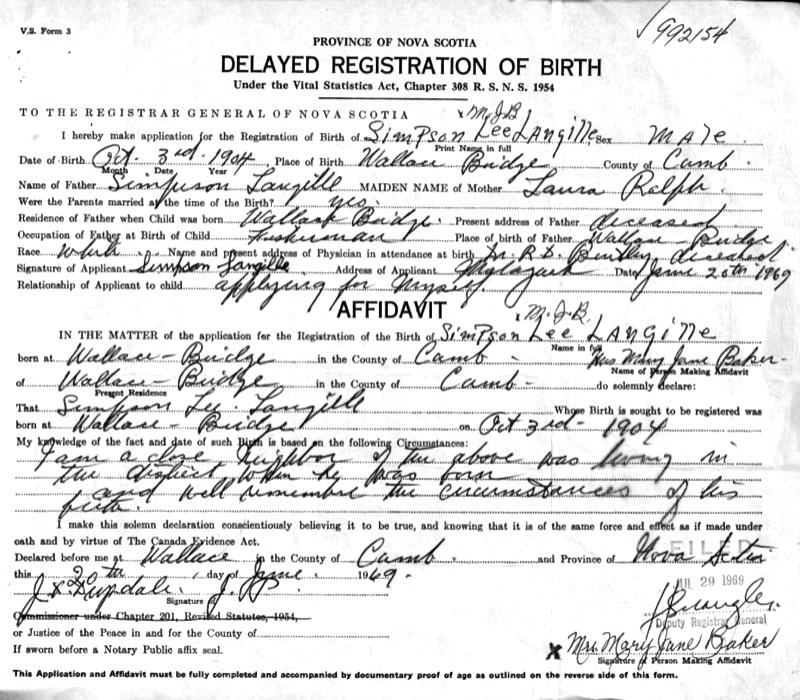 V.S. Form 3
992154
PROVINCE OF NOVA SCOTIA
DELAYED REGISTRATION OF BIRTH
Under the Vital Statistics Act, Chapter 308 R. S. N. S. 1954
TO THE REGISTRAR GENERAL OF NOVA SCOTIA x M.J.B
I hereby make application for the Registration of Birth of Simpson Lee Langille Sex Male
Print Name in full
Date of Birth Oct. 3rd. 1904 Place of Birth Wallace Bridge County of Cumb.
Month Date Year
Name of Father Simpson Langille MAIDEN NAME of Mother Laura Ralph.
Were the Parents married at the time of the Birth? yes.
Residence of Father when Child was born Wallace Bridge. Present address of Father deceased
Occupation of Father at Birth of Child Fisherman Place of birth of Father Wallace Bridge
Race White Name and present address of Physician in attendance at birth Dr. R. D. deceased.
Signature of Applicant Simpson Langille Address of Applicant Date June 20th 1969
Relationship of Applicant to child applying for Myself
AFFIDAVIT x M.J.B.
IN THE MATTER of the application for the Registration of the Birth of Simpson Lee LANGILLE
Name in full
born at Wallace-Bridge in the County of Cumb - Mrs Mary Jane Baker-
Name of Person Making Affidavit
of Wallace-Bridge in the County of Cumb- do solemnly declare:
Present Residence
That Simpson Lee. Langille Whose Birth is sought to be registered was
born at Wallace-Bridge on Oct 3rd- 1904
My knowledge of the fact and date of such Birth is based on the following Circumstances:
I am a close neighbor of the above was living in
the district when he was born
and well remember the circumstances of his
birth.
I make this solemn declaration conscientiously believing it to be true, and knowing that it is of the same force and effect as if made under
oath and by virtue of The Canada Evidence Act.
Declared before me at Wallace in the County of Cumb. and Province of Nova Scotia
FILED
this 20th day of June 1969-
JUL 29 1969
J.P.
Signature
Deputy Registrar General
Commissioner under Chapter 201, Revised Statutes, 1954,
or Justice of the Peace in and for the County of
x Mrs. Mary Jane Baker
If sworn before a Notary Public affix seal.
Signature of Person Making Affidavit
This Application and Affidavit must be fully completed and accompanied by documentary proof of age as outlined on the reverse side of this form.